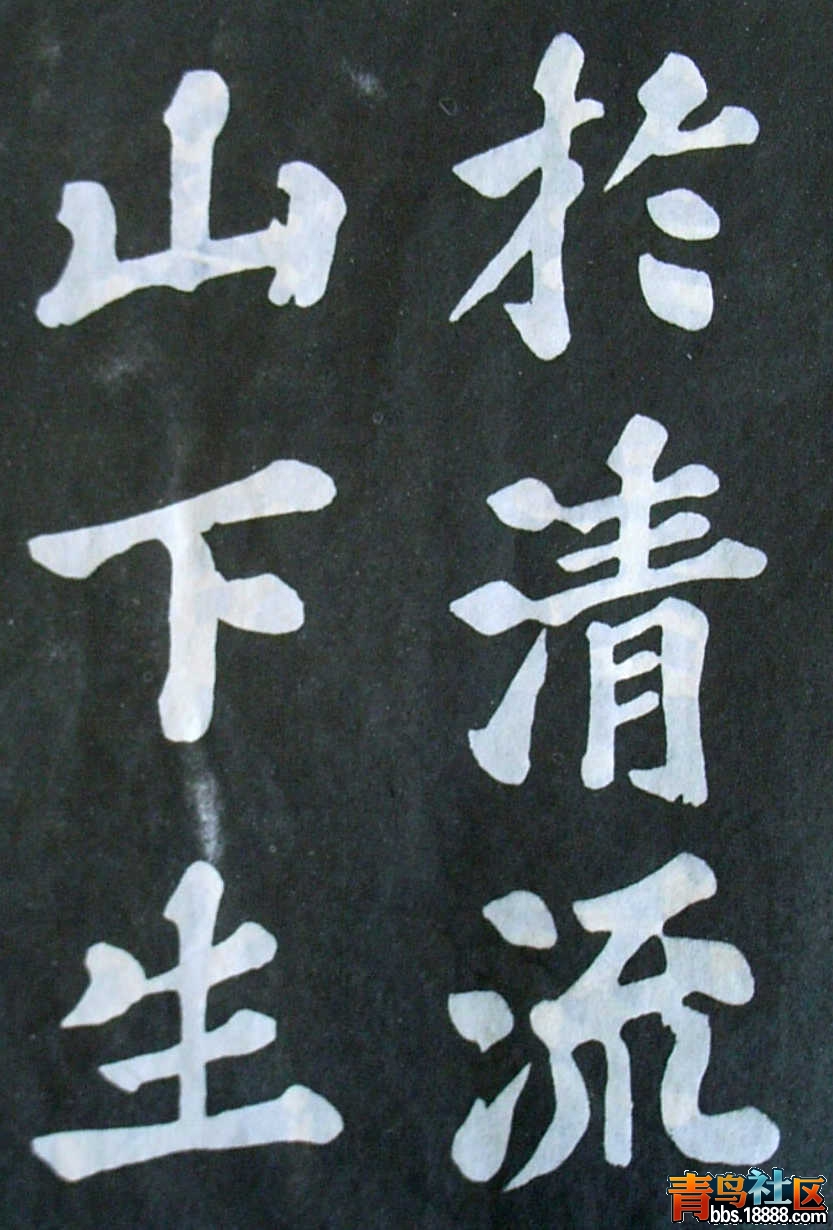 於清流
山下生
青鸟社区
bbs.18888.com